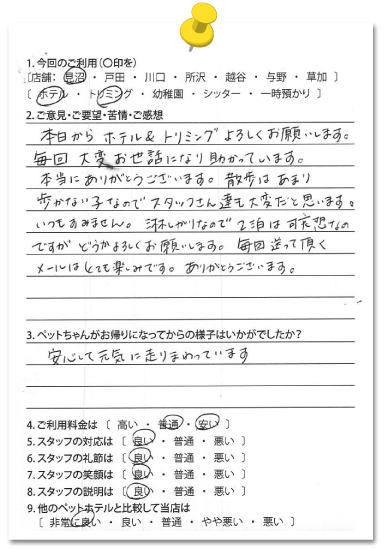 1. 今回のご利用(〇印を)
〔店舗: 見沼 ・ 戸田 ・ 川口 ・ 所沢 ・ 越谷 ・ 与野 ・ 草加 〕
〔 ホテル ・ トリミング ・ 幼稚園 ・ シッター ・ 一時預かり 〕
2. ご意見・ご要望・苦情・ご感想
本日から ホテル& トリミング よろしくお願いします。
毎回 大変お世話になり助かっています。
本当にありがとうございます。散歩は あまり
歩かない子なので スタッフさん達も大変だと思います。
いつもすみません。 淋しがりなので 2泊は可哀想なの
ですが どうかよろしくお願いします。 毎回送って頂く
メールはとても楽しみです。 ありがとうございます。
3. ペットちゃんがお帰りになってからの様子はいかがでしたか?
安心して元気に走りまわっています
4. ご利用料金は 〔 高い ・ 普通 ・ 安い 〕
5. スタッフの対応は 〔 良い ・ 普通 ・ 悪い 〕
6. スタッフの礼節は 〔 良い ・ 普通 ・ 悪い 〕
7. スタッフの笑顔は 〔 良い ・ 普通 ・ 悪い 〕
8. スタッフの説明は 〔 良い ・ 普通 ・ 悪い 〕
9. 他のペットホテルと比較して当店は
〔 非常に良い ・ 良い ・ 普通 ・ やや悪い ・ 悪い 〕